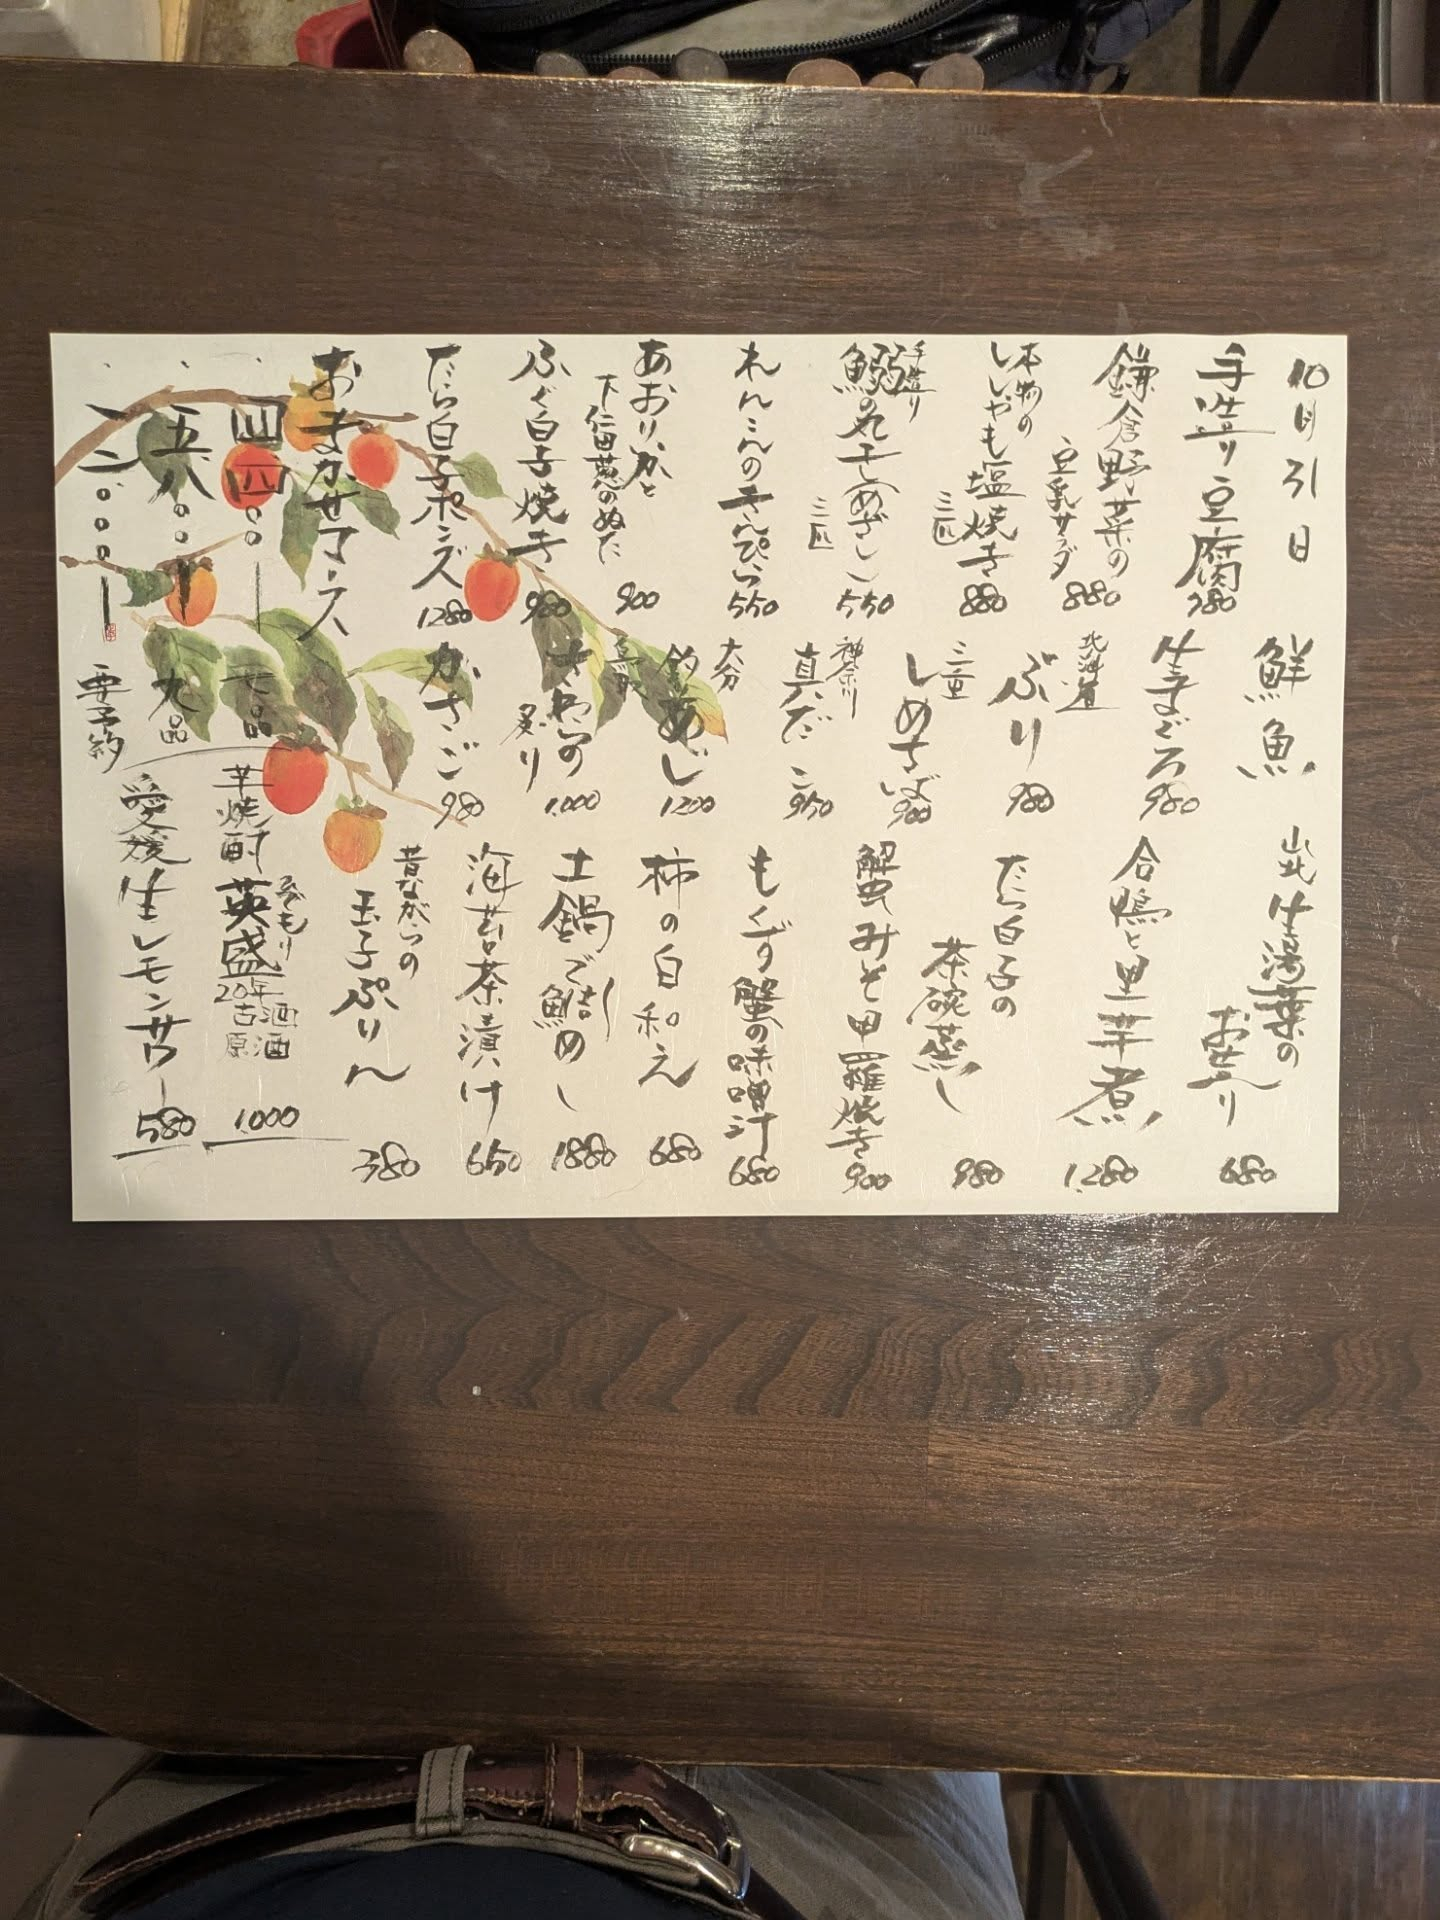 10月31日
手造り豆腐
380
鎌倉野菜の
豆乳サラダ
880
本物の
ししゃも塩焼き
三匹
880
手造り
鰯の丸干し(めざし)
三匹
550
れんこんのきんぴら
550
あおりいかと
下仁田葱のぬた
900
ふぐ白子焼き
980
たら白子ポンズ
1280
おまかせコース
四四〇〇
七品
五八〇〇
九品
一二〇〇〇
要予約
鮮魚
生まぐろ
980
北海道
ぶり
980
三重
しめさば
900
神奈川
真だこ
950
大分
釣あじ
1200
さわらの
炙り
1,000
かさご
980
生湯葉の
お造り
680
合鴨と里芋煮
1,280
たら白子の
茶碗蒸し
980
蟹みそ甲羅焼き
900
もくず蟹の味噌汁
680
柿の白和え
680
土鍋で鯛めし
1880
海苔茶漬け
650
昔ながらの
玉子ぷりん
380
芋焼酎
英盛
20年
古酒
原酒
1,000
愛媛生レモンサワー
580